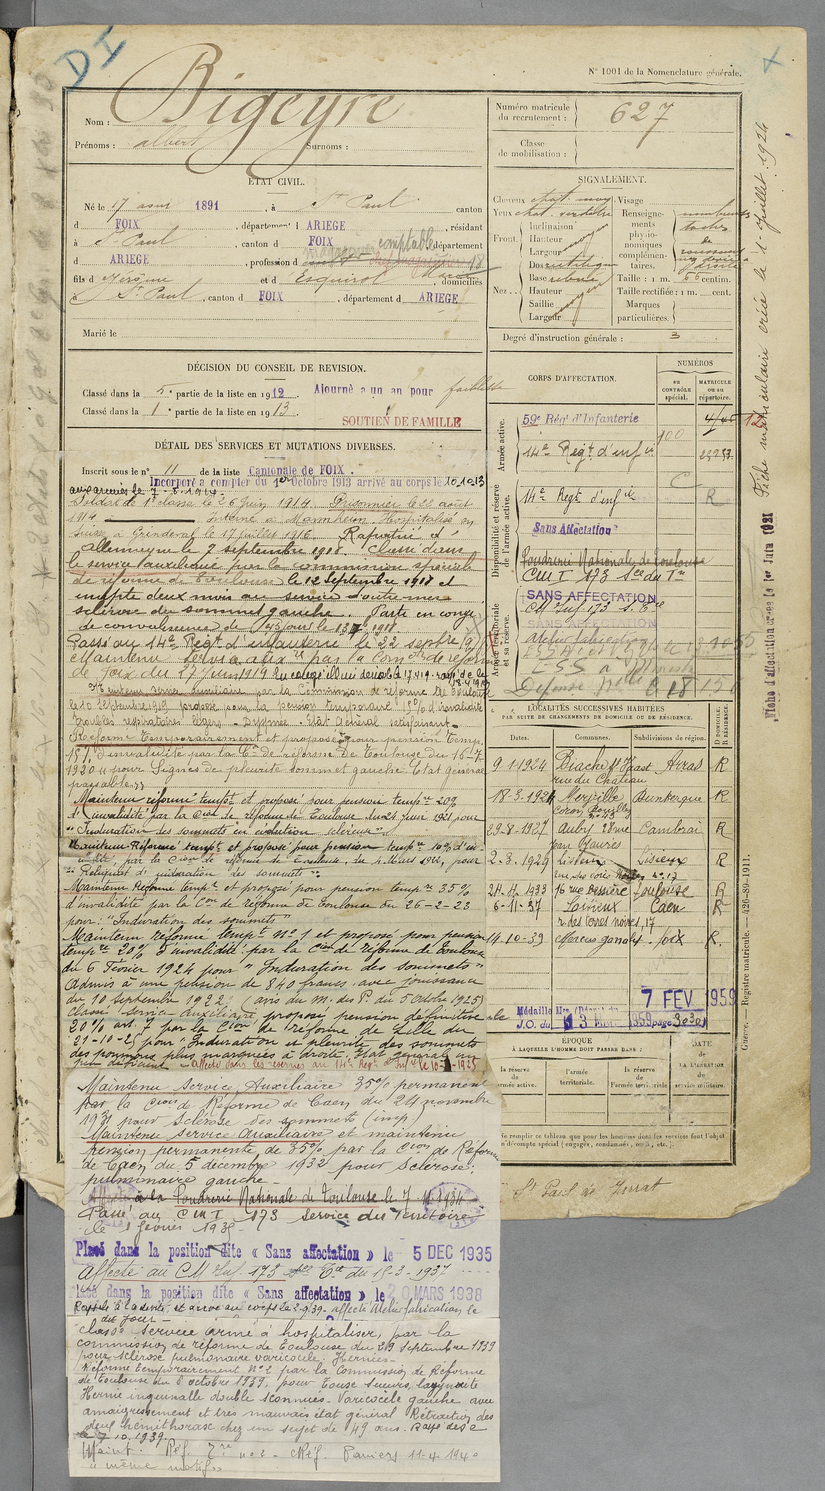 DI
N° 1001 de la Nomenclature générale.
Nom : Bigeyre
Prénoms : albert Surnoms :
Numéro matricule du recrutement : 627
Classe de mobilisation :
ÉTAT CIVIL.
Né le 17 aout 1891, à St Paul canton
d FOIX, département d ARIEGE, résidant
à St Paul, canton d FOIX département
d ARIEGE, profession d comptable
fils d Jérôme et d Esquirol domiciliés
à St Paul, canton d FOIX, département d ARIEGE
Marié le
SIGNALEMENT.
Cheveux chat. moy Visage
Yeux
Front. Inclinaison
Hauteur
Largeur
Nez Dos rectiligne
Base
Hauteur
Saillie
Largeur
Renseignements physionomiques complémentaires.
nombreuses taches de rousseur
Taille : 1 m. 66 centim.
Taille rectifiée : 1 m. cent.
Marques particulières.
Degré d'instruction générale : 3
DÉCISION DU CONSEIL DE REVISION.
Classé dans la 5e partie de la liste en 1912 Ajourné a un an pour faiblesse
Classé dans la 1e partie de la liste en 1913
SOUTIEN DE FAMILLE
DÉTAIL DES SERVICES ET MUTATIONS DIVERSES.
Inscrit sous le n° 11 de la liste Cantonale de FOIX.
Incorporé à compter du 1er Octobre 1913 arrivé au corps le 10.10.13
aux armées le 7-8-1914
Soldat de 1e classe le 26 Juin 1914 Prisonnier le 22 août
1914 Interné à Mannheim. Hospitalisé en
Suisse à Grindelval le 17 juillet 1916 Rapatrié d'
Allemagne le 7 septembre 1918. Classé dans
le service auxiliaire par la commission spéciale
de réforme de Toulouse le 12 Septembre 1918 et
inapte deux mois au service d'outre-mer
sclérose du sommet gauche. Parti en congé
de convalescence de 45 jours le 1918
Passé au 14e Régt d'infanterie le 22 septbre 19
Maintenu service auxre par la Comon de réforme
de Foix du 27 Juin 1919
Maintenu service auxiliaire par la Commission de réforme de Toulouse
du 10 Septembre 1919 proposé pour la pension temporaire 15% d'invalidité
troubles respiratoires légers - Dyspnée. Etat Général satisfaisant
Réformé Temporairement et proposé pour pension temp.
15% d'invalidité par la Con de réforme de Toulouse du 16-7
1920 pour Signes de pleurite sommet gauche Etat général
passable
Maintenu réformé tempt et proposé pour pension tempre 20%
d'invalidité par la Cion de réforme de Toulouse du 24 Juin 1921 pour
"Induration des sommets en évolution scléreuse"
Maintenu Réformé tempt et proposé pour pension tempre 10% d'in-
validité, par la Cion de réforme de Toulouse, du 4 Mars 1922, pour
"Reliquat d'induration des sommets"
Maintenu Réformé tempt et proposé pour pension tempre 35%
d'invalidité par la Con de réforme de Toulouse du 26-2-23
pour: "Induration des sommets"
Maintenu réformé tempt n° 1 et proposé pour pension
tempre 20% d'invalidité par la Cion de réforme de Toulouse
du 6 Février 1924 pour "Induration des sommets"
Admis à une pension de 840 francs avec jouissance
du 10 septembre 1922. (avis du M. des P. du 5 Octobre 1925)
classé Service Auxiliaire proposé pension définitive
20% art. 7 par la Cion de réforme de Lille du
21-10-25 pour "Induration et pleurite des sommets
des poumons plus marquées à droite. Etat général un
peu déficient. - affecté dans les réserves au 14e Régt d'Infie le 10- -1925
Maintenu Service Auxiliaire 35% permanent
par la Cion de Réforme de Caen du 24 novembre
1931 pour Sclérose des sommets (imp)
Maintenu Service Auxiliaire et maintenu
pension permanente de 35% par la Cion de Réforme
de Caen du 5 décembre 1932 pour sclérose
pulmonaire gauche -
Affecté à la Poudrerie Nationale de Toulouse le 7
Passé au CMI 173 service du Territoire
le 1 février 1935-
Placé dans la position dite « Sans affectation » le 5 DEC 1935
Affecté au CM Inf. 173 Sce Tre du 15-3-1937
Placé dans la position dite « Sans affectation » le 20 MARS 1938
Rappelé à l'activité, et arrivé au corps le 2-9-39 - affecté Atelier fabrication, le
dit jour -
classé service armé à hospitaliser, par la
commission de réforme de Toulouse du 29 Septembre 1939
pour sclérose pulmonaire varicocèle, Hernies-
Réformé temporairement N°2 par la Commission de Réforme
de Toulouse du 6 octobre 1939, pour toux sueurs, laryngite
Hernie inguinale double Varicocèle gauche avec
amaigrissement et très mauvais état général Rétraction des
deux hemithorax chez un sujet de 49 ans. Rayé des c
le 7.10.1939.
Maint. Réf. Tre n° 2 - CRéf. Pamiers 11-4-1940
même motif
CORPS D'AFFECTATION.
NUMÉROS
au contrôle spécial.
matricule ou au répertoire.
Armée active.
59e Régt d'Infanterie
14e Régt d'infie
Disponibilité et réserve de l'armée active.
14e Regt d'infie R
Sans Affectation
Poudrerie Nationale de Toulouse
CMI 173 Sce du Tre
Armée territoriale et sa réserve.
SANS AFFECTATION
CM Inf 173 S. Tre
SANS AFFECTATION
atelier fabrication
LOCALITÉS SUCCESSIVES HABITÉES
PAR SUITE DE CHANGEMENTS DE DOMICILE OU DE RÉSIDENCE.
Dates. Communes. Subdivisions de région. D. DOMICILE R. RÉSIDENCE.
9-1-1924 Biache St Vaast Arras R
rue du Château
18-3-1924 Merville Dunkerque R
29-8-1927 Auby Cambrai R
Jean Jaures
2-8-1929 Lisieux Lisieux R
21-11-1933 16 rue Bessière Toulouse R
6-11-37 Lisieux Caen R
r. des Cores noires, 17
14-10-39 Mercus-Garrabet Foix R.
7 FEV 1959
Médaille Mre
J.O. du 13 1959 page 3030
ÉPOQUE
À LAQUELLE L'HOMME DOIT PASSER DANS :
DATE de LA LIBÉRATION du service militaire.
la réserve de l'armée active.
l'armée territoriale.
la réserve de l'armée territoriale.
Ne remplir ce tableau que pour les hommes dont les services font l'objet d'un décompte spécial (engagés, condamnés, omis, etc.).
St Paul de Jarrat
Fiche matriculaire créée le 1er Juillet 1924
Fiche d'affectation créée le 1er Juin 1921
Guerre. — Registre matricule. — 426-89-1911.